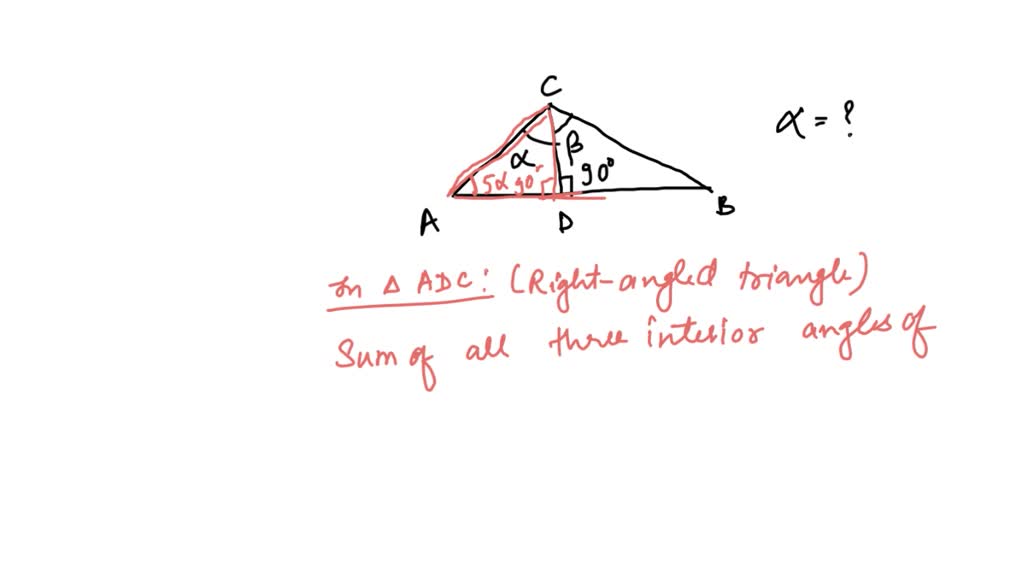 C
α = ?
α β
5α 90° 90°
A D B
In △ ADC: (Right-angled triangle)
Sum of all three interior angles of